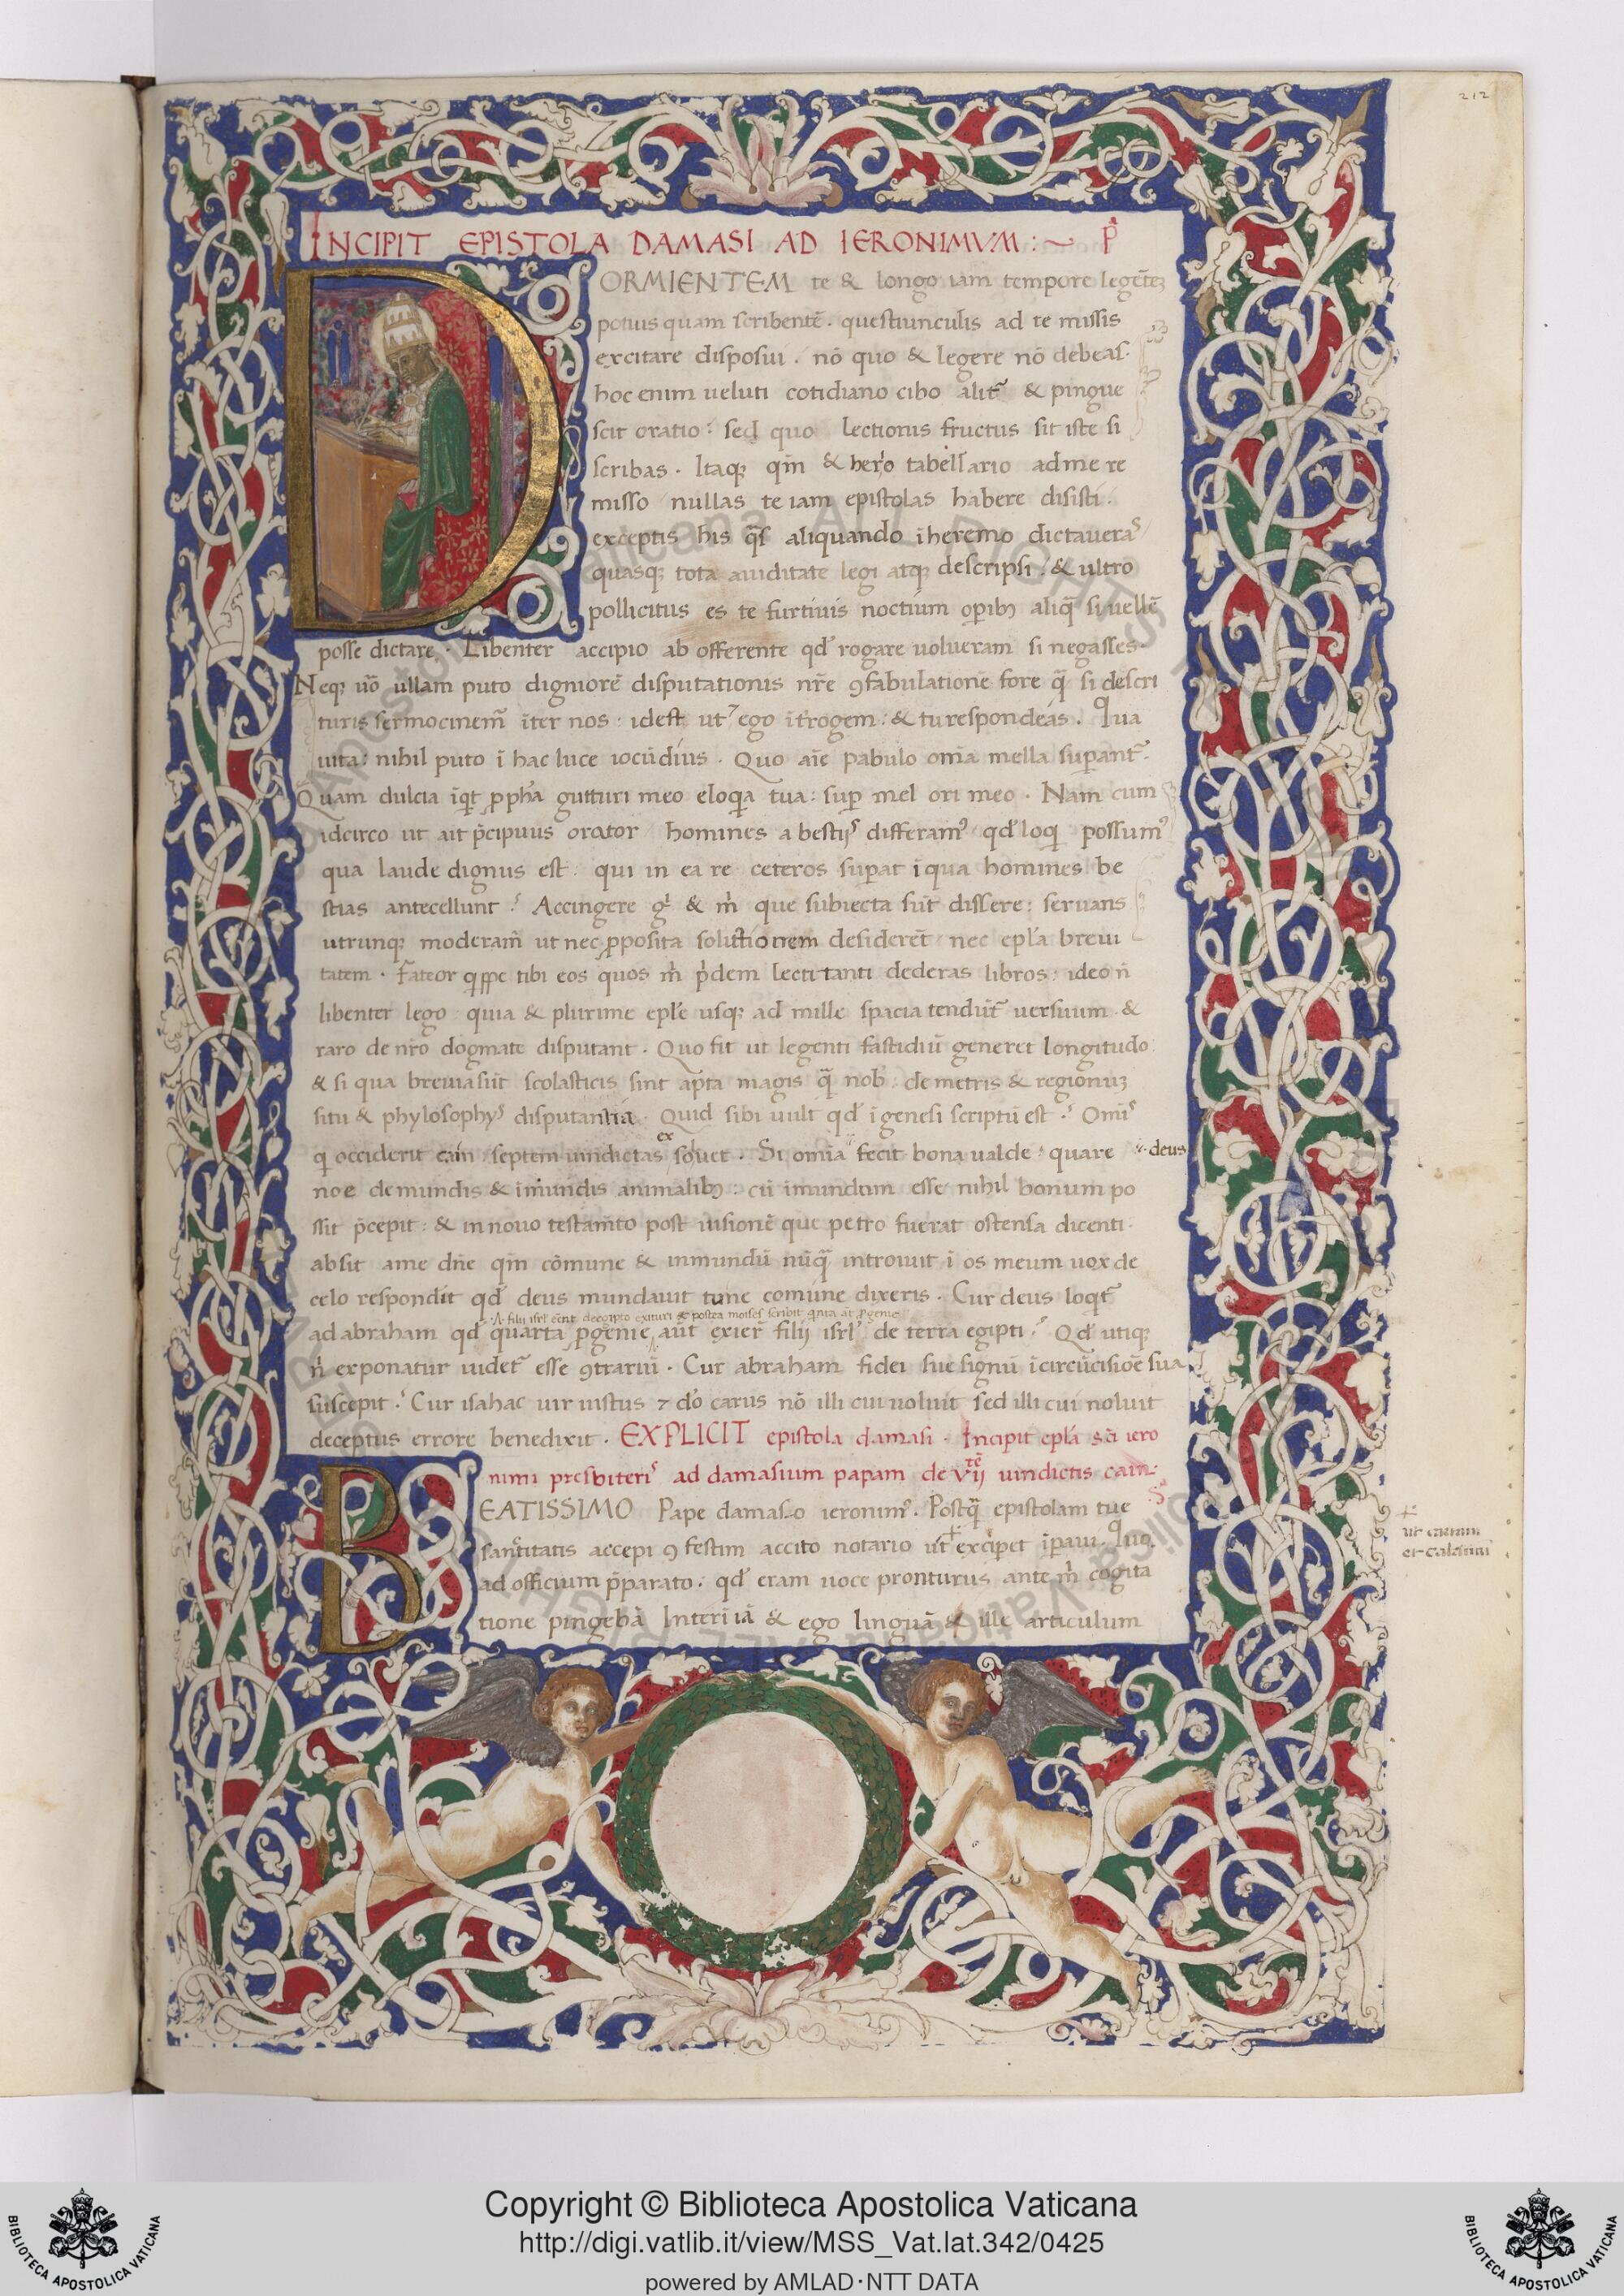 212
INCIPIT EPISTOLA DAMASI AD IERONIMVM :~ P
DORMIENTEM te & longo iam tempore legētē
potius quam scribentē . questiunculis ad te missis
excitare disposui . nō quo & legere nō debeas .
hoc enim ueluti cotidiano cibo alit̄ & pingue
scit oratio : sed quo lectionis fructus sit iste si
scribas . Itaqꝫ qm̄ & hero tabellario ad me re
misso nullas te iam epistolas habere disisti .
exceptis his q̄s aliquando ī heremo dictaueras
quasqꝫ tota auiditate legi atqꝫ descripsi . & ultro
pollicitus es te furtiuis noctium oꝑibꝫ aliq̄ si uellē
posse dictare . Libenter accipio ab offerente qd̄ rogare uolueram si negasses .
Neqꝫ uō ullam puto digniorē disputationis nr̄e ꝯfabulatione fore q̄ si descri
turis sermocinem̄ īter nos : idest ut ego īt̄rogem : & tu respondeas . Qua
uita : nihil puto ī hac luce iocūdius . Quo aīe pabulo om̄ia mella suꝑant̄ .
Quam dulcia īqt ꝓph̄a gutturi meo eloqia tua : suꝑ mel ori meo . Nam cum
idcirco ut ait p̄cipuus orator homines a bestijs differamꝰ qd̄ loqi possumꝰ
qua laude dignus est . qui in ea re ceteros suꝑat ī qua homines be
stias antecellunt ? Accingere gͥ & m̄ que subiecta sūt dissere : seruans
utrunqꝫ moderam̄ ut nec ꝓposita solutionem desideret nec epl̄a breui
tatem . Fateor qippe tibi eos quos m̄ p̄dem lectitanti dederas libros : ideo n̄
libenter lego quia & plurime epl̄e usqꝫ ad mille spacia tendūt̄ uersuum . &
raro de nr̄o dogmate disputant . Quo fit ut legenti fastidiū generet longitudo
& si qua breuia sūt scolasticis sint apta magis q̄ nob̄ : de metris & regionuꝫ
situ & phylosophys disputantia . Quid sibi uult qd̄ ī genesi scriptū est ? Om̄is
q occiderit cain septem uindictas exsoluet . Si om̄ia fecit bona ualde quare deus
noe de mundis & īmundis animalibꝫ : cū imundum esse nihil bonum po
ssit p̄cepit : & in nouo testam̄to post uisionē que petro fuerat ostensa dicenti .
absit a me dn̄e qm̄ cōmune & inmundū nūq̄ introiuit ī os meum uox de
celo respondit qd̄ deus mundauit tu ne comune dixeris . Cur deus loqt̄
ad abraham qd̄ quarta ꝓgenie aūt exier̄ filij isrl̄ de terra egipti ? Qd̄ utiqꝫ
n̄ exponatur uidet̄ esse ꝯtrariū . Cur abraham fidei sue signū ī circūcisiōe sua
suscepit ? Cur isahac uir iustus ⁊ dō carus nō illi cui uoluit sed illi cui noluit
deceptus errore benedixit . EXPLICIT epistola damasi . Incipit epl̄a sc̄i iero
nimi presbiteri ad damasium papam de vij uindictis cain :
BEATISSIMO Pape damaso ieronimꝰ . Postq̄ epistolam tue
sanctitatis accepi ꝯfestim accito notario ut exciperet īꝑaui . Quo
ad officium p̄parato : qd̄ eram uoce prompturus ante m̄ cogita
tione pingebā Interi iā & ego linguā & ille articulum
ut calamum
Copyright © Biblioteca Apostolica Vaticana
http://digi.vatlib.it/view/MSS_Vat.lat.342/0425
powered by AMLAD·NTT DATA
BIBLIOTECA APOSTOLICA VATICANA
BIBLIOTECA APOSTOLICA VATICANA